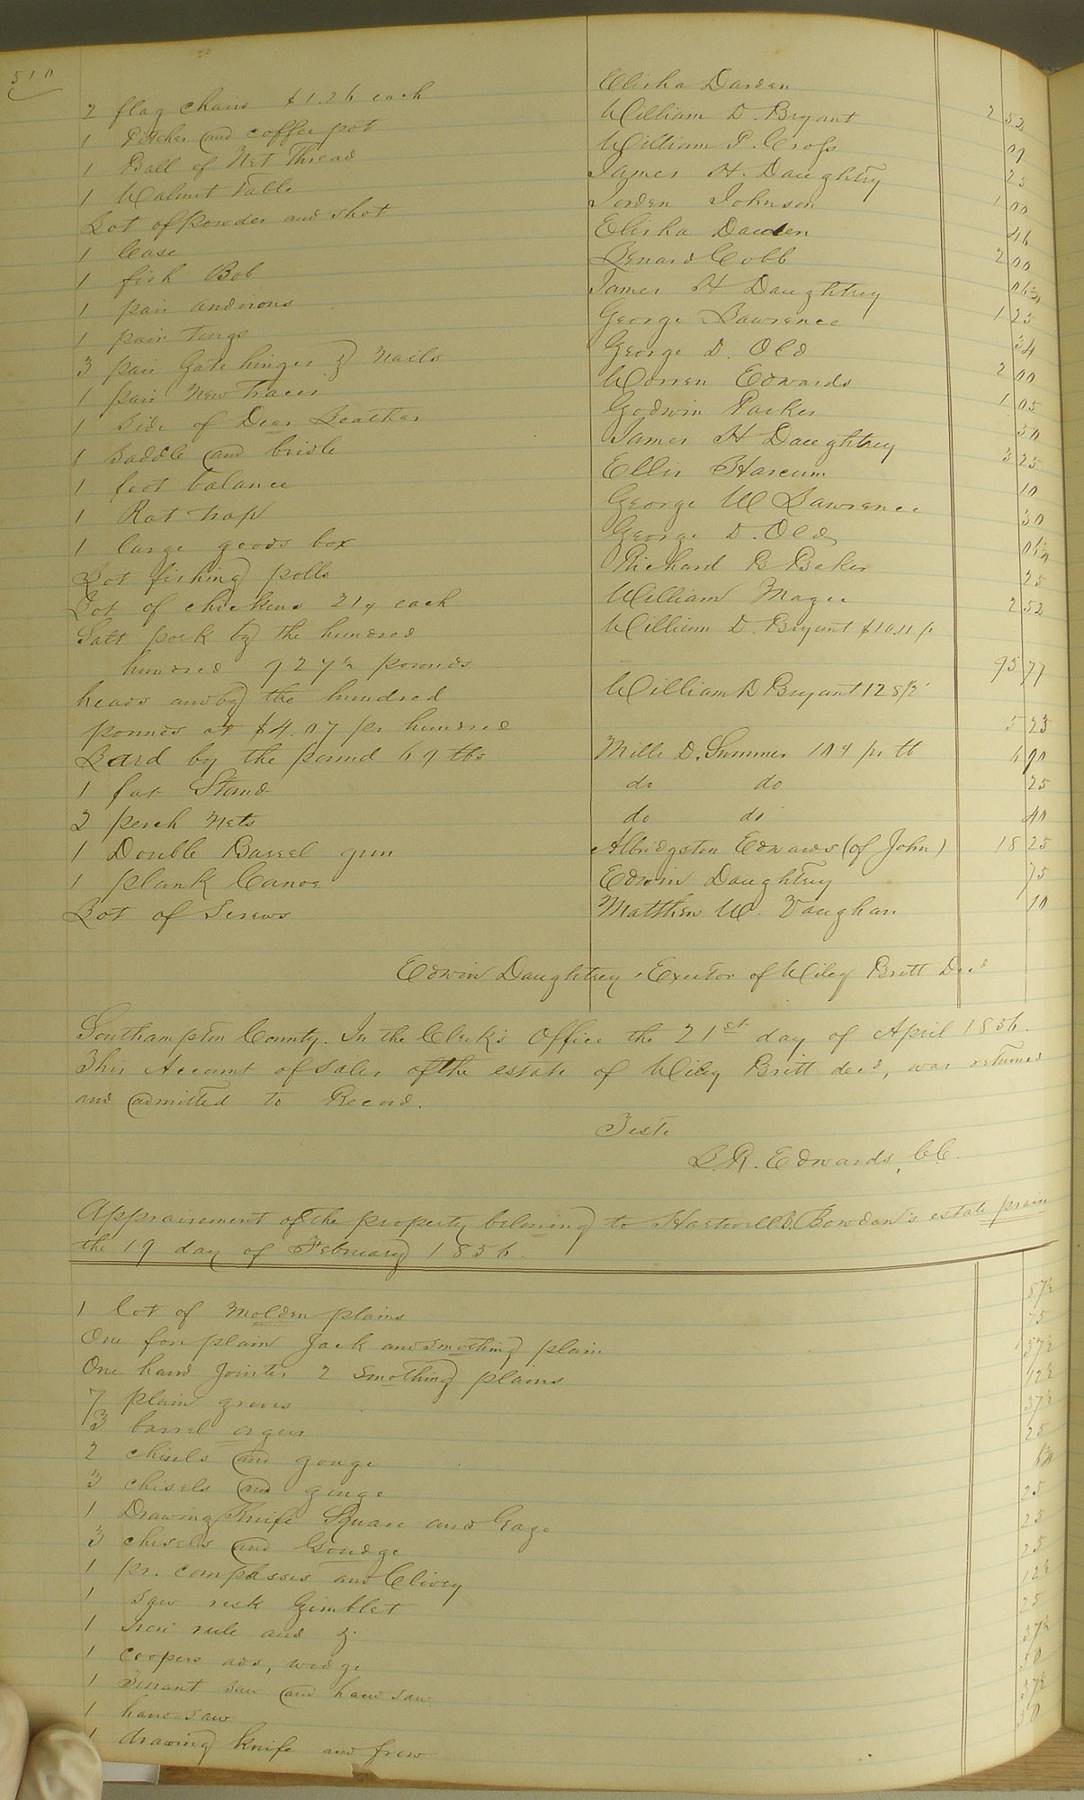 510
2 flag chairs $1.26 each Elisha Darden 2 52
1 Pitcher and coffee pot William D. Bryant 09
1 Ball of Net Thread William P. Cross 25
1 Walnut Table James H. Daughtry 1 00
Lot of powder and shot Jorden Johnson 46
1 Case Elisha Darden 2 00
1 fish Bob Benard Cobb 06¼
1 pair andirons James H Daughtrey 1 25
1 pair tongs George Lawrence 34
3 pair Gate hinges & Nails George D. Old 2 00
1 pair New traces Warren Edwards 1 05
1 Side of Deer Leather Godwin Parker 50
1 Saddle and bridle James H Daughtrey 3 25
1 foot balance Ellis Harcum 10
1 Rat trap George W Lawrence 30
1 large goods box George D. Old 06¼
Lot fishing polls Richard B Beker 25
Lot of chickens 21¢ each William Magee 2 52
Salt pork by the hundred William D. Bryant $10.11 p
hundred pounds 95 77
heads and by the hundred William D Bryant 128½
pounds at $4.07 pr hundred 5 23
Lard by the pound 69 lbs Mills D. Summer 10¢ pr lb 6 90
1 fat Stand do do 25
2 perch Nets do do 40
1 Double Barrel gun Albridgston Edwards (of John) 18 25
1 plank Canoe Edwin Daughtrey 75
Lot of Screws Matthew W. Vaughan 10
Edwin Daughtrey, Exutor of Wiley Britt Decd
Southampton County. In the Clerk's Office the 21st day of April 1856.
This Account of Sales of the estate of Wiley Britt decd, was returned
and admitted to Record.
Teste
L.R. Edwards, C.C.
Appraisement of the property belonging to Hartwell B. Bowdan's estate
the 19 day of February 1856.
1 lot of Molden plains 87½
One fore plain Jack and smothing plain 75
One hand Jointer 2 Smothing plains 87½
7 plain groves 12½
3 barrel orgers 37½
2 chisels and gouge 25
3 chisels and gouge
1 Drawing Knife Square and Gage 25
3 chisels and Goudge 25
1 pr. compasses and Clivey 25
1 Saw Gimblet 12½
1 Iron rule and &. 25
1 coopers ads, wedge 37½
1 Tenant saw and hand saw 50
1 hand saw 37½
1 drawing knife and frow 50